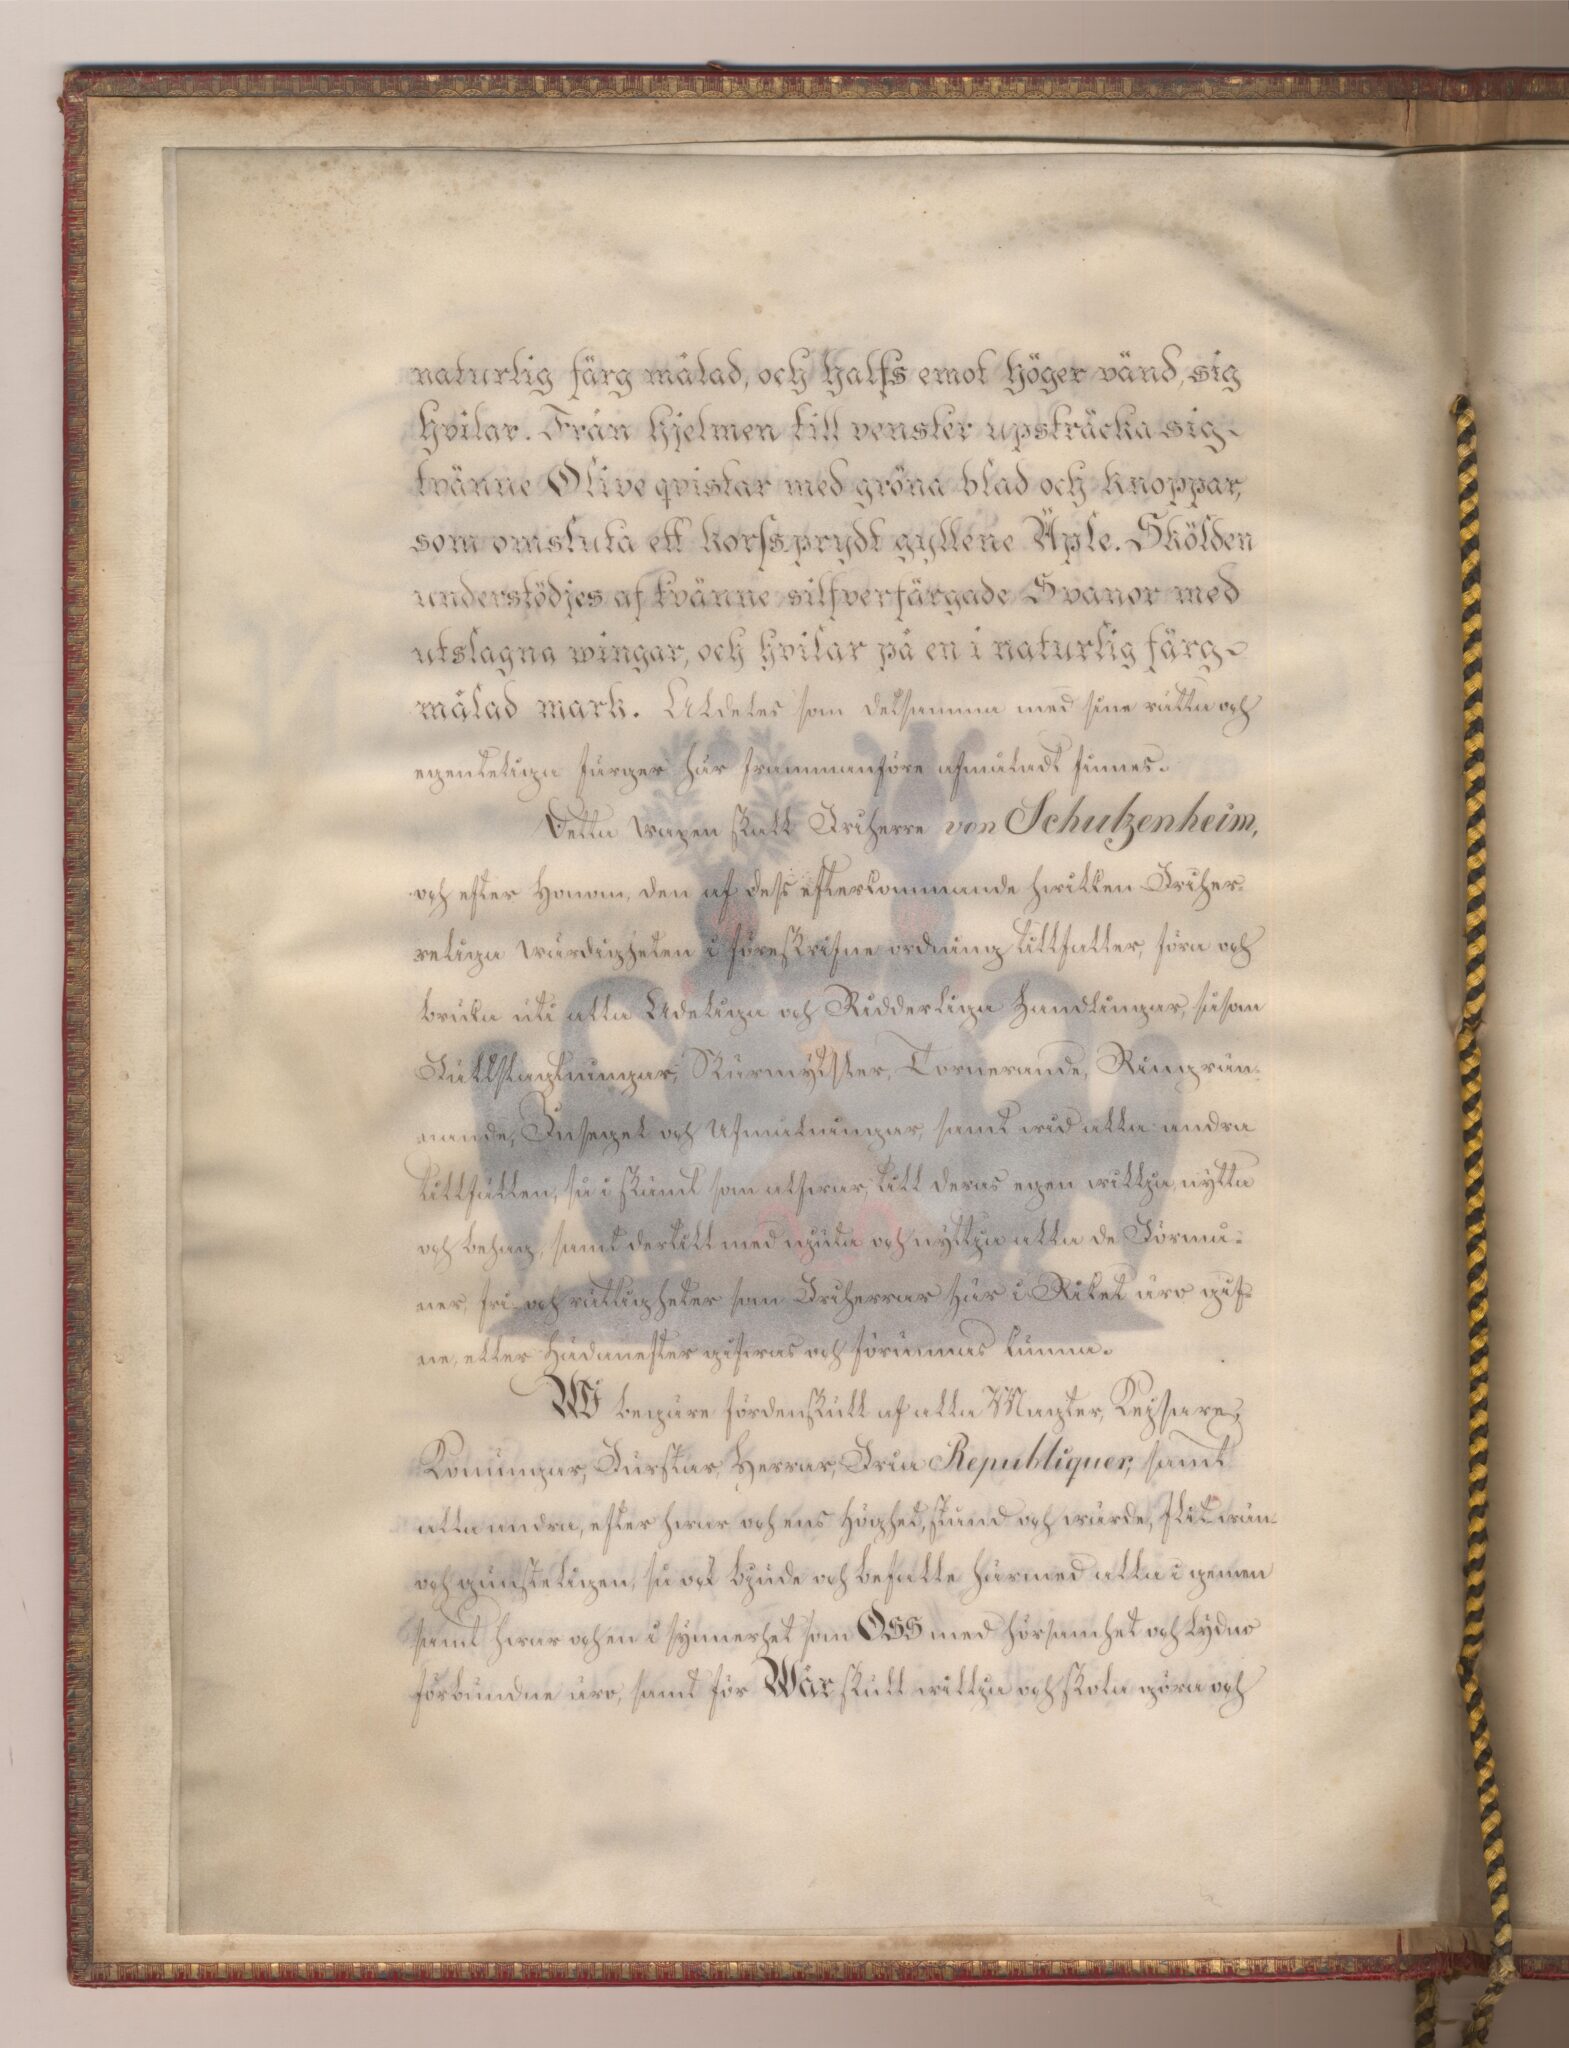 naturlig färg målad, och halfs emot höger vänd, sig
hvilar. Från hjelmen till venster upsträcka sig
tvänne Olive qvistar med gröna blad och knoppar,
som omsluta ett korfsprydt gyllene Äple. Skölden
understödjes af tvänne silfverfärgade Svanor med
utslagna wingar, och hvilar på en i naturlig färg
målad mark. Aldeles som detsamma med sine rätta och
egenteliga färger här frammanföre afmåladt finnes.
Detta wapen skall Friherre von Schutzenheim,
och efter Honom, den af dess efterkommande hwilken Friher-
religa wärdigheten i föreskrifne ordning tillfaller, föra och
bruka uti alla Adeliga och Ridderliga Handlingar, såsom
Fältslagtningar, Skärmytsler, Tornerande, Ringrän-
nande, Insegel och Afmålningar, samt wid alla andra
tillfällen, så i skämt som alfwar, till deras egen willja, nytta
och behag, samt dertill med njuta och nyttja alla de Förmå-
ner, fri- och rättigheter som Friherrar här i Riket äro gif-
ne, eller hädanefter gifwas och förunnas kunna.
Wi begäre fördenskull af alla Magter, Keysare,
Konungar, Furstar, Herrar, Fria Republiquer, samt
alla andra, efter hwar och ens Höghet, stånd och wärde, flit wän-
och gunsteligen, så ock bjude och befalle härmed alla i gemen
samt hwar och en i synnerhet som OSS med hörsamhet och lydno
förbundne äro, samt för Wår skull willja och skola göra och